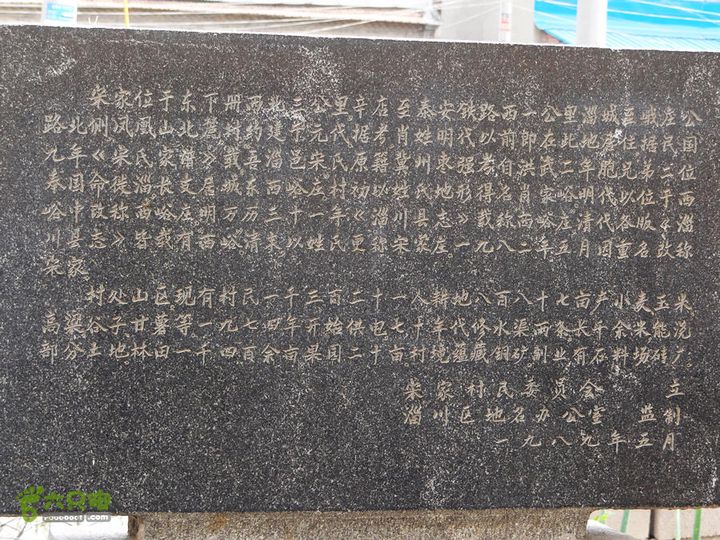 柴家位于东下册西北三公里辛店至泰安铁路西一公里淄城至峨庄公
路北侧凤凰山北麓约建于元代据考肖姓明代以前即在此地居住据民国
九年《柴氏家谱》载喜淄邑柴氏原籍冀州枣强洪武二年胞兄弟二位
奉国命徙淄长支居城西峪庄村初以姓氏地形得名肖家峪明代以位于西
峪中改称西峪庄明万历三十一年《淄川县志》载称南峪清代各版《淄
川县志》皆载有西峪清末以姓氏更称宋家庄。一九八二年五月因重名改称
柴家。
村处山区现有村民一千三百二十一人耕地八百八十七亩产小麦玉米
高粱谷子甘薯等一九七四年开始供电。七十年代修水渠两条长千余米能浇
部分土地林田一千四百余亩果园二十亩。村境蕴藏铜矿。副业有石料场砖厂。
柴家村民委员会 立
淄川区地名办公室 监制
一九八九年五月
六只脚